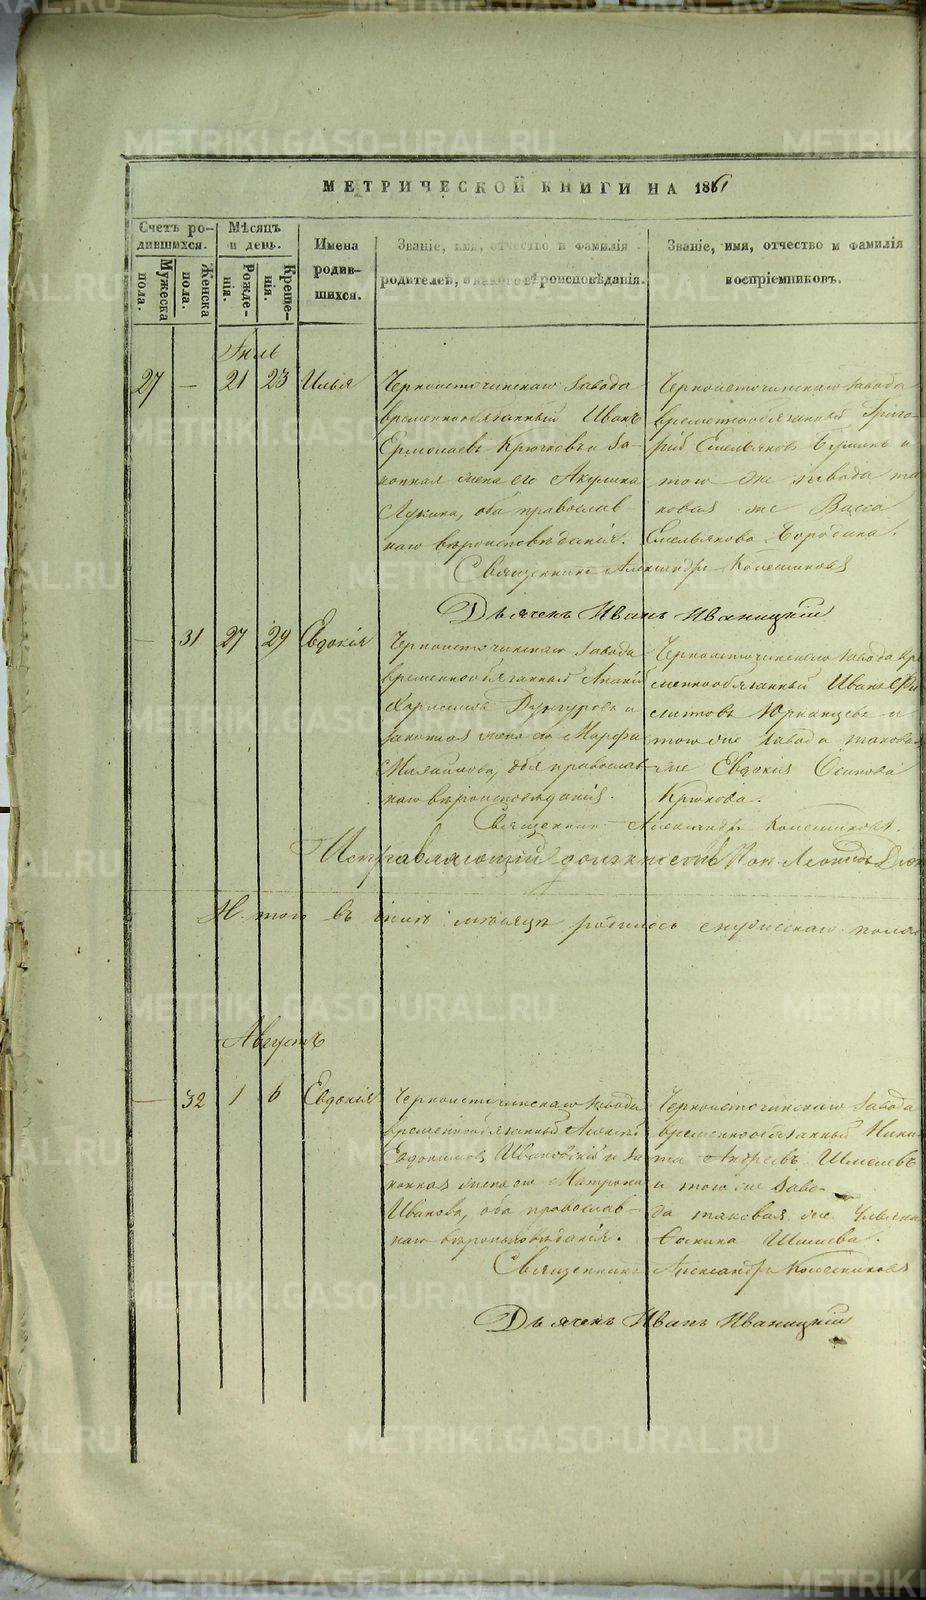 МЕТРИЧЕСКОЙ КНИГИ НА 1861
Счетъ ро-
дившихся.
Мужеска
пола.
Женска
пола.
Мѣсяцъ
и день.
Рожде-
нія.
Креще-
нія.
Имена
родив-
шихся.
Званіе, имя, отчество и фамилія
родителей, и какого вѣроисповѣданія.
Званіе, имя, отчество и фамилія
воспріемниковъ.
Іюль
27 — 21 23 Илья
Черноисточинскаго завода
временнообязанный Иванъ
Ермолаевъ Крючковъ и за-
конная жена его Акулина
Лукина, оба православ-
наго вѣроисповѣданія.
Черноисточинскаго завода
временнообязанный Григо-
рій Емельяновъ и
того же завода та
ковая же Васса
Емельянова Бородина.
Священникъ Александръ Колесниковъ
Дьячекъ Иванъ Иваницкій
— 31 27 29 Евдокія
Черноисточинскаго завода
временнообязанный
Харисимовъ и
законная жена его Марфа
Михайлова, оба православ-
наго вѣроисповѣданія.
Черноисточинскаго завода вре
меннообязанный Иванъ
и
того же завода таковая
же Евдокія Осипова
Крюкова.
Священникъ Александръ Колесниковъ.
Исправляющій должность Пон. Леонидъ
Итого въ іюлѣ мѣсяцѣ родилось мужескаго пола
Августъ
— 32 1 6 Евдокія
Черноисточинскаго завода
временнообязанный Алексѣй
Евдокимовъ Ивановскій и за
конная жена его Матрона
Иванова, оба православ-
наго вѣроисповѣданія.
Черноисточинскаго завода
временнообязанный Ники-
та Андреевъ Шмелевъ
и того же заво-
да таковая же
Шмелева.
Священникъ Александръ Колесниковъ
Дьячекъ Иванъ Иваницкій
METRIKI.GASO-URAL.RU